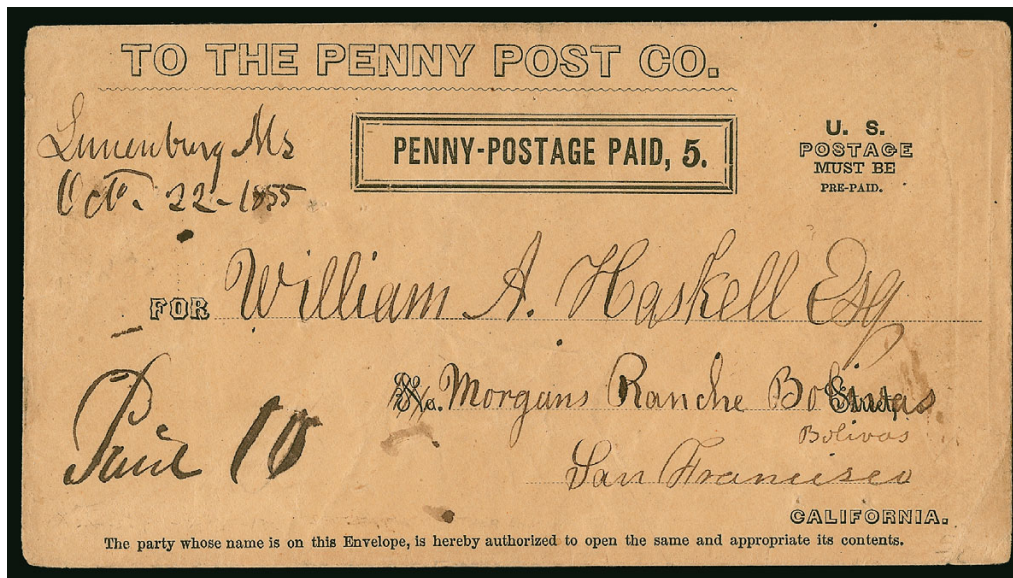 TO THE PENNY POST CO.
Lunenburg Ms
Oct. 22-1855
PENNY-POSTAGE PAID, 5.
U. S.
POSTAGE
MUST BE
PRE-PAID.
FOR William A. Haskell Esq
Paid 10
No. Morgans Ranche Bolinas Street,
Bolivas
San Francisco
CALIFORNIA.
The party whose name is on this Envelope, is hereby authorized to open the same and appropriate its contents.